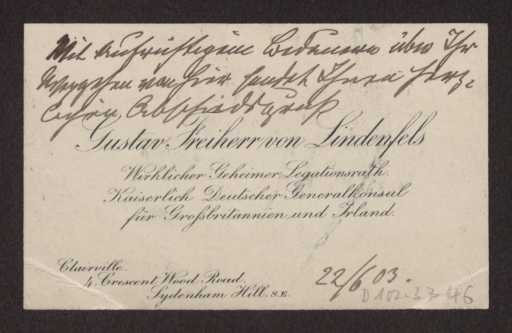 Mit aufrichtigem Bedauern über Ihr
Weggehen von hier sendet Ihnen herz-
lichen Abschiedsgruß
Gustav Freiherr von Lindenfels
Wirklicher Geheimer Legationsrath
Kaiserlich Deutscher Generalkonsul
für Großbritannien und Irland.
Claerville
4, Crescent Wood Road,
Sydenham Hill. S.E.
22/6 03.
D 102-33 46